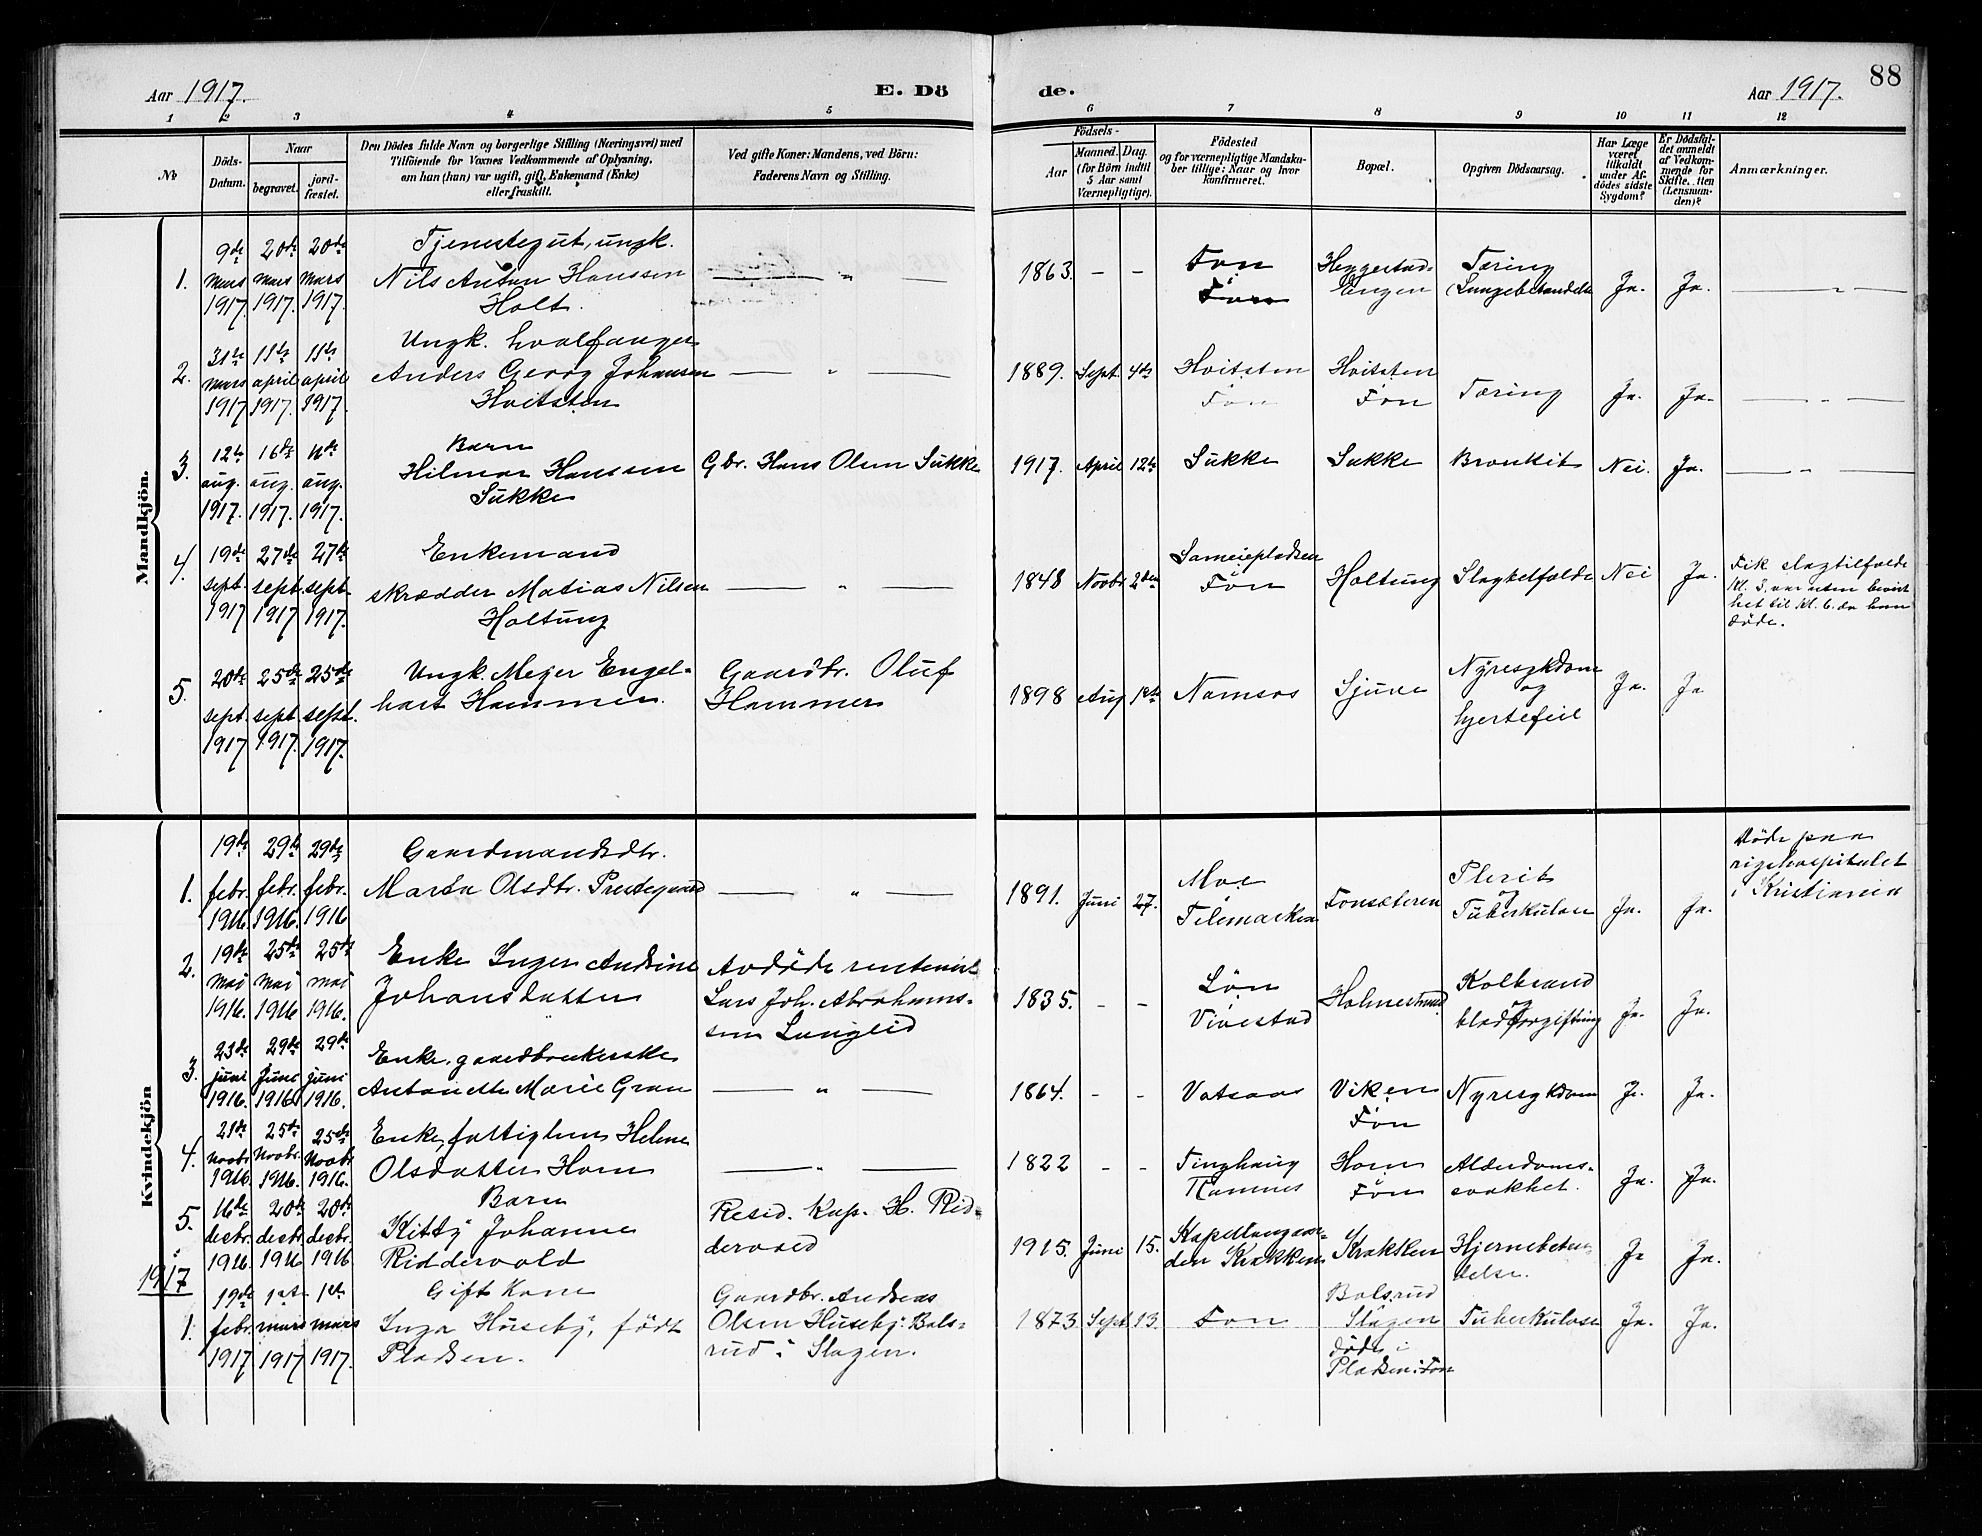 Aar 1917.
E. Dö
de.
Aar 1917.
88
1 2 3 4 5 6 7 8 9 10 11 12
No
Döds-
Datum.
Naar
begravet.
jord-
fæstet.
Den Dödes fulde Navn og borgerlige Stilling (Næringsvei) med
Tilföiende for Voxnes Vedkommende af Oplysning,
om han (hun) var ugift, gift, Enkemand (Enke)
eller fraskilt.
Ved gifte Koner: Mandens, ved Börn:
Faderens Navn og Stilling.
Födsels-
Aar
Maaned. Dag.
(for Börn indtil
5 Aar samt
Værnepligtige).
Födested
og for værnepligtige Mandska-
ber tillige: Naar og hvor
konfirmeret.
Bopæl.
Opgiven Dödsaarsag.
Har Læge
været
tilkaldt
under Af-
dödes sidste
Sygdom?
Er Dödsfal-
det anmeldt
af Vedkom-
mende for
Skifteretten
(Lensman-
den)?
Anmærkninger.
Mandkjön.
1.
9de mars 1917
20de mars 1917.
20de mars 1917.
Tjenestegut, ungk.
Nils Anton Hanssen
Holt.
— „ —
1863. – –
Fon
Fon
Heggestad-
Engen
Tæring
(Lungebetændelse
Ja. Ja.
— „ —
2.
31te mars 1917
11te april 1917.
11te april 1917.
Ungk. hvalfanger
Anders Georg Johansen
Hvitsten
— „ —
1889. Sept. 4de
Hvitsten
Fon
Hvitsten
Fon
Tæring
Ja. Ja.
— „ —
3.
12te aug. 1917.
16de aug. 1917.
aug. 1917.
Barn
Hilmar Hanssen
Sukke
Gbr. Hans Olsen Sukke
1917. April 12te
Sukke
Sukke
Bronkit
Nei. Ja.
— „ —
4.
19de sept. 1917
27de sept. 1917
27de sept. 1917.
Enkemand
skrædder Matias Nilsen
Holtung
— „ —
1848 Novbr 2den
Sameiepladsen
Fön
Holtung
Slagtilfælde
Nei Ja.
Fik slagtilfælde
kl. 3, var uten bevist
het til kl. 6. da han
døde.
5.
20de sept. 1917
25de sept. 1917.
25de sept. 1917.
Ungk. Mejer Engel-
hart Hammer.
Gaardbr. Oluf
Hammer
1898 Aug 1ste
Namsos
Sjuve
Nyresykdom
og
hjertefeil
Ja. Ja
Kvindekjön
1.
19de febr. 1916.
29de febr. 1916.
29de febr. 1916
Gaardmandsdtr.
Marta Olsdtr. Prestegaard
— „ —
1891. Juni 27.
Moe
Telemarken
Fonsæteren
Plerit
og
Tuberkulose
Ja. Ja.
Døde paa
rigshospitalet
i Kristiania
2.
19de mai 1916.
25de mai 1916
25de mai 1916.
Enke Inger Andrine
Johansdatter
Avdøde rentenist
Lars Joh. Abrahams-
sen Langlid
1835. – –
Løn
Vivestad
Holmestrand
Kolbrand
blodforgiftning
Ja. Ja.
3.
23de juni 1916.
29de juni 1916
29de juni 1916.
Enke, gaardbrukerske
Antonette Marie Gran
— „ —
1864. – –
Vataas
Viken
Fon
Nyresykdom
Ja. Ja.
4.
21de Novbr. 1916
25de Novbr. 1916.
25de Novbr. 1916.
Enke, fattiglem Helene
Olsdatter Horn
— „ —
1822 – –
Tinghaug
Ramnes
Horn
Fön
Alderdoms-
svakhet.
Ja. Ja.
5.
16de desbr. 1916
20de desbr. 1916
20de desbr. 1916
Barn
Kitty Johanne
Riddervold
Resid. Kap. H. Rid-
dervold
1915. Juni 15.
Kapellangaar-
den Krakken
Krakken
Hjernebetæn-
delse.
Ja Ja.
1917
1.
19de febr 1917
1ste mars 1917
1ste mars 1917.
Gift Kone
Inga Huseby, født
Pladsen.
Gaardbr. Andreas
Olsen Huseby. Bols-
rud i Slagen.
1873 Sept 13.
Fon
Bolsrud
Slagen
døde i
Pladsen i Fon
Tuberkulose
Ja. Ja.